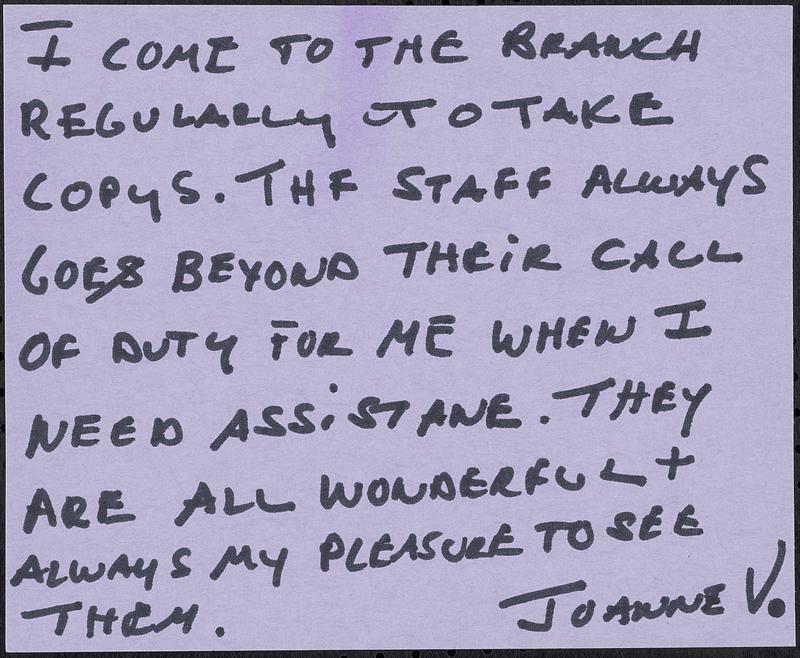 I COME TO THE BRANCH
REGULARLY TO TAKE
COPYS. THE STAFF ALWAYS
GOES BEYOND THEIR CALL
OF DUTY FOR ME WHEN I
NEED ASSISTANE. THEY
ARE ALL WONDERFUL +
ALWAYS MY PLEASURE TO SEE
THEM. JOANNE V.